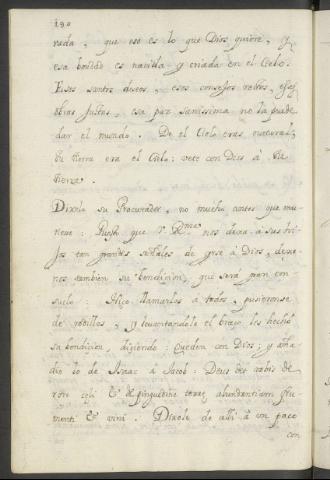 190
rada, que eso es lo que Dios quiere, y
esa bondad es nacida y criada en el Cielo.
Esos santos deseos, esos consejos rectos, esas
obras justas, esa paz santissima no la puede
dar el mundo. De el Cielo eras natural,
tu tierra era el Cielo: vete con Dios à tu
tierra.
Dixole su Procurador, no mucho antes que mu-
riese: Puesto que V. Rma nos dexa à sus hi-
jos tan grandes señales de yrse à Dios, dexe-
nos tambien su bendicion, que serà gran con-
suelo. Hizo llamarlos à todos, pusieronse
de rodillas, y levantandole el brazo les hechò
su bendicion, diziendo: Queden con Dios: y aña-
dio lo de Isaac à Jacob: Deus det vobis de
rore cœli & de pinguedine terræ abundantiam fru-
menti & vini. Dixole de alli à un poco
con